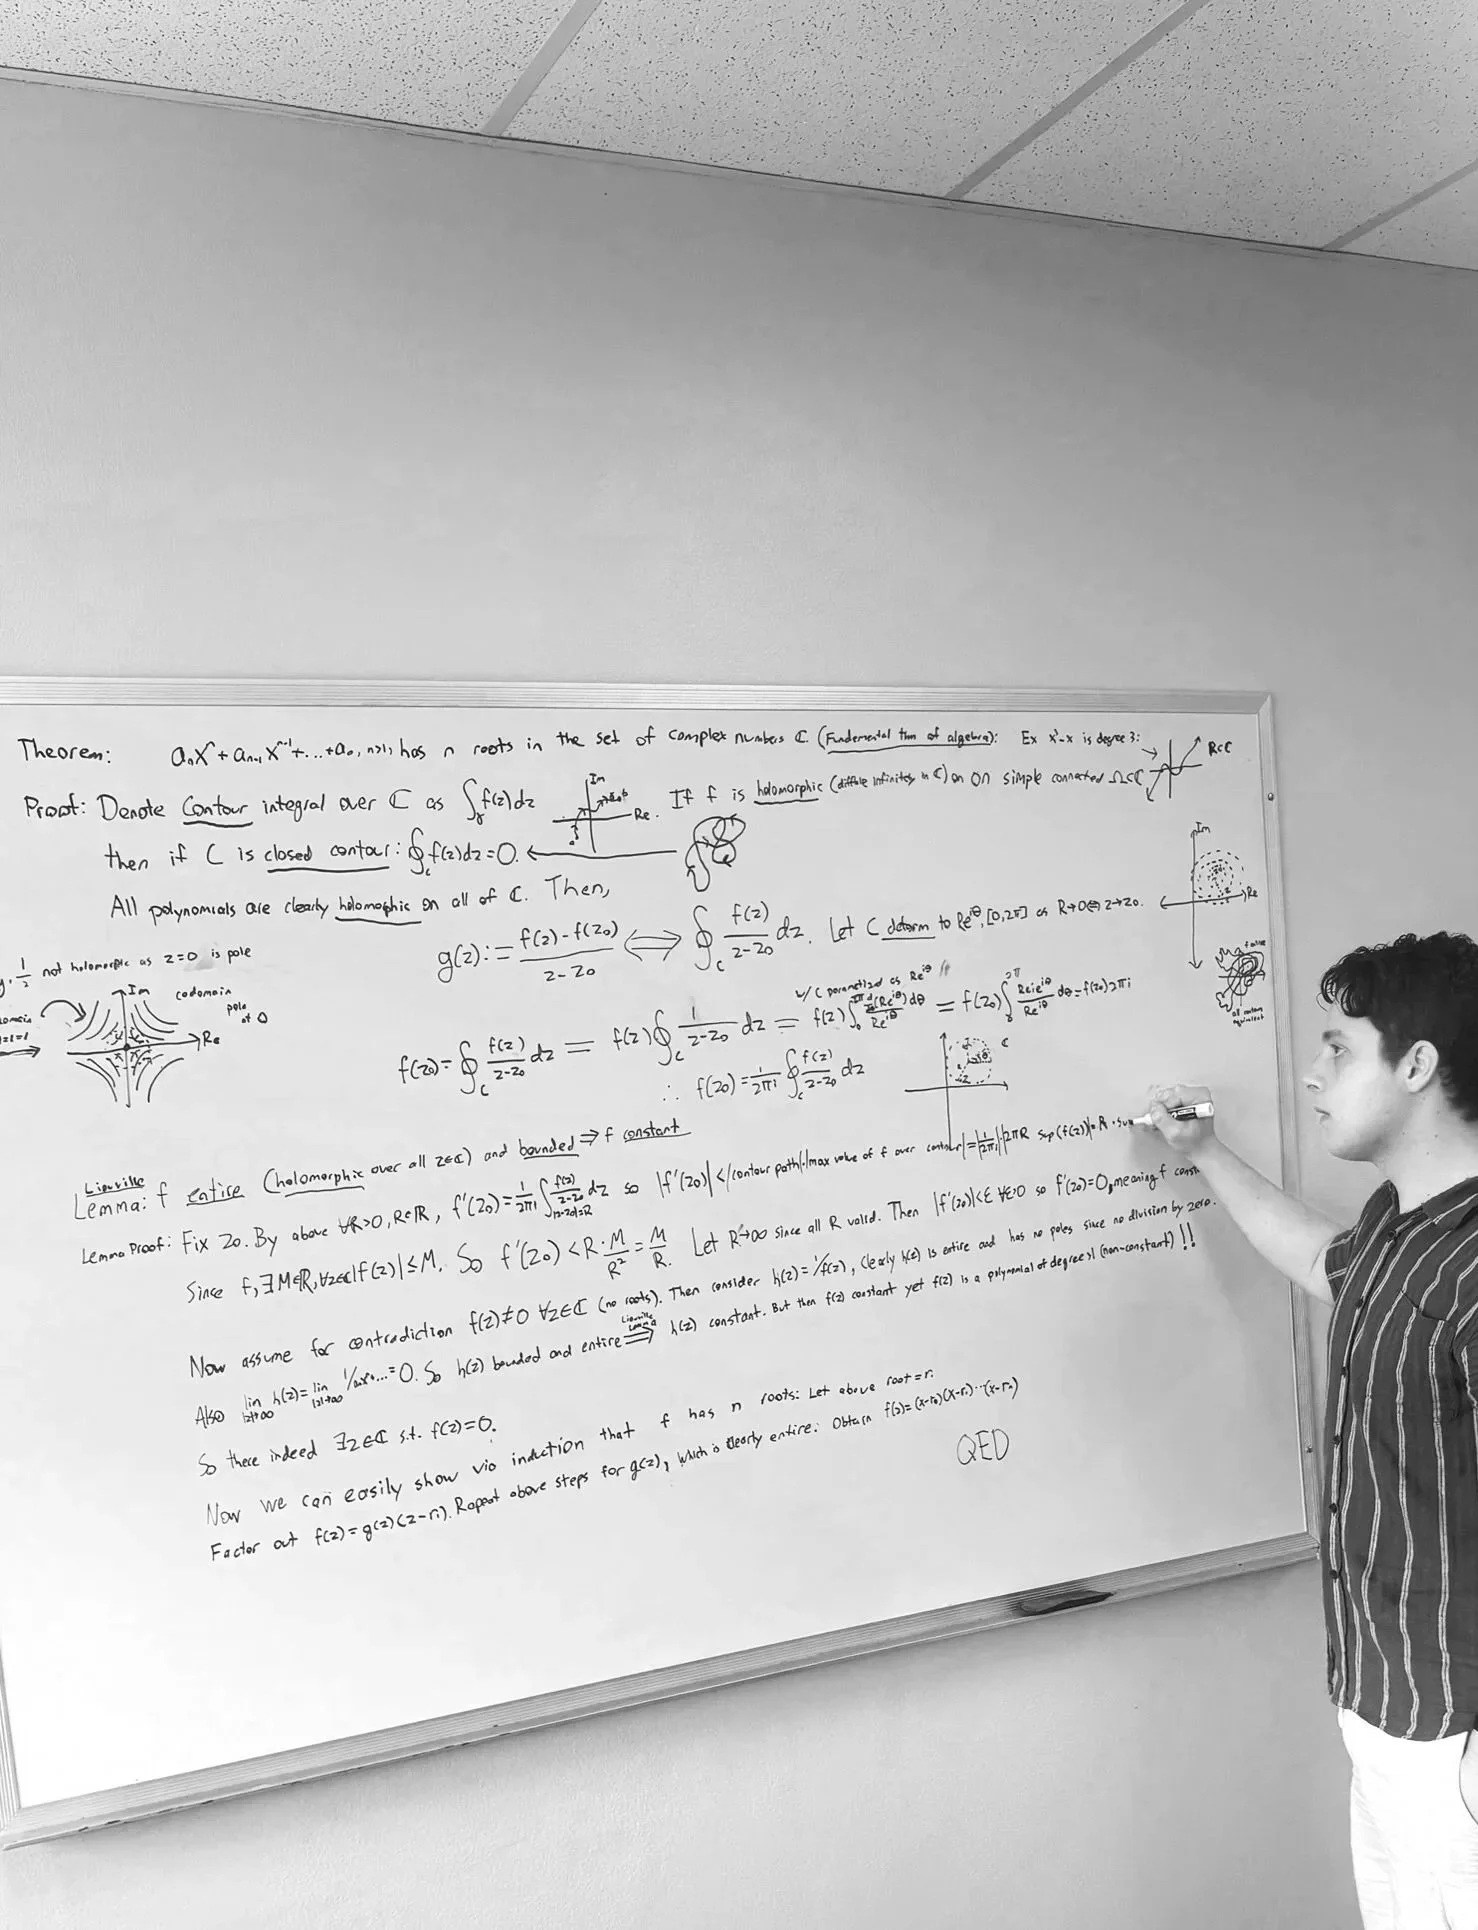 Theorem: aₙxⁿ + aₙ₋₁xⁿ⁻¹+...+a₀, n>1, has n roots in the set of complex numbers ℂ (Fundamental thm of algebra): Ex x³-x is degree 3: ℝ⊂ℂ
Proof: Denote Contour integral over ℂ as ∫_γ f(z)dz Im Re. If f is holomorphic (diffable infinitely in ℂ) on simple connected Ω⊂ℂ
then if C is closed contour: ∮_c f(z)dz=0.
All polynomials are clearly holomorphic on all of ℂ. Then,
Im
Re
g(z):= f(z)-f(z₀)/z-z₀ ⟺ ∮_c f(z)/z-z₀ dz. Let C deform to Re^iθ, [0,2π] as R→0⟺z→z₀.
1/z not holomorphic as z=0 is pole
Im codomain
pole at 0
Re
w/ C parametized as Re^iθ
f(z₀)=∮_c f(z)/z-z₀ dz = f(z)∮_c 1/z-z₀ dz = f(z)∫ (Re^iθ)dθ/Re^iθ = f(z₀)∫ Rie^iθ/Re^iθ dθ=f(z₀)2πi
∴ f(z₀)=1/2πi ∮_c f(z)/z-z₀ dz
ℂ
equivalent
Liouville
Lemma: f entire (holomorphic over all z∈ℂ) and bounded ⇒ f constant
Lemma Proof: Fix z₀. By above ∀R>0, R∈ℝ, f'(z₀)=1/2πi ∫_|z-z₀|=R f(z)/z-z₀ dz so |f'(z₀)|<|contour path|·|max value of f over contour|=|1/2πi|·|2πR sup(f(z))|
Since f, ∃M∈ℝ, ∀z∈ℂ|f(z)|≤M. So f'(z₀)<R·M/R²=M/R. Let R→∞ since all R valid. Then |f'(z₀)|<ε ∀ε>0 so f'(z₀)=0, meaning f
Now assume for contradiction f(z)≠0 ∀z∈ℂ (no roots). Then consider h(z)=1/f(z), clearly h(z) is entire and has no poles since no division by zero.
Liouville
Lemma
Also lim_|z|→∞ h(z)=lim_|z|→∞ 1/aₙxⁿ+...=0. So h(z) bounded and entire ⇒ h(z) constant. But then f(z) constant yet f(z) is a polynomial of degree>1 (non-constant) !!
So there indeed ∃z∈ℂ s.t. f(z)=0.
Now we can easily show via induction that f has n roots: Let above root=r₁
Factor out f(z)=g(z)(z-r₁). Repeat above steps for g(z), which is clearly entire: Obtain f(z)=(x-r₀)(x-r₁)...(x-rₙ)
QED